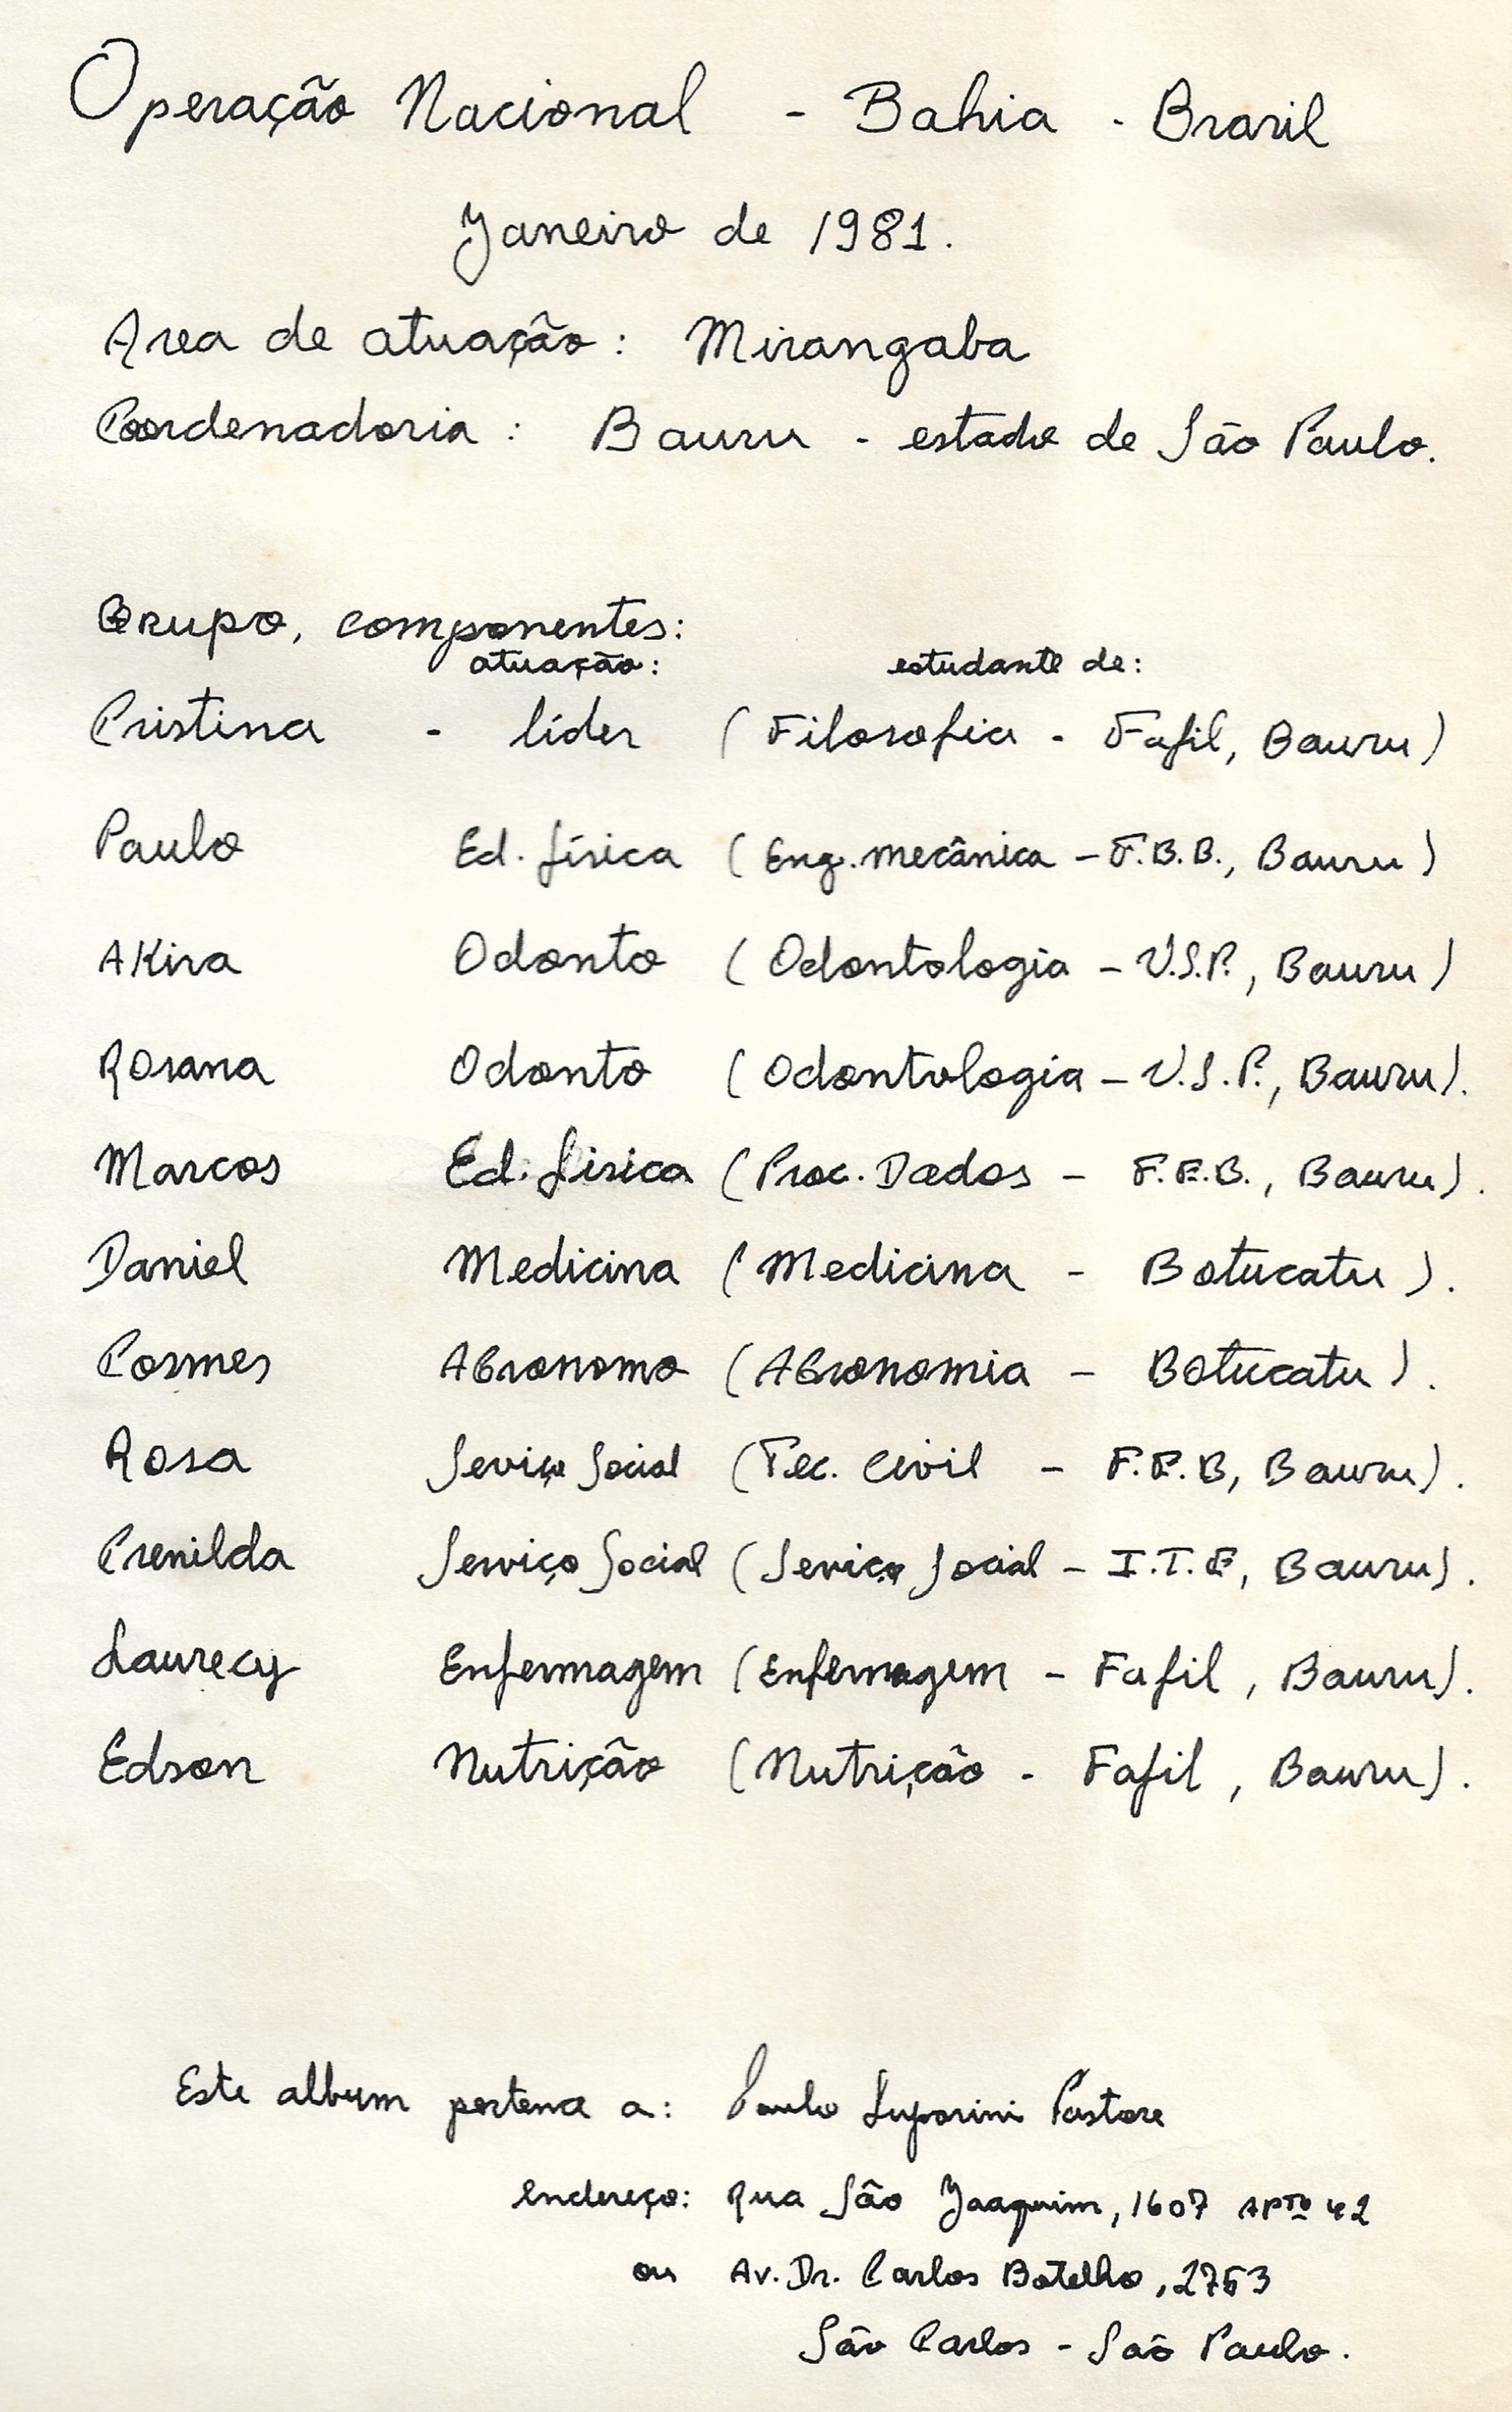 Operação Nacional - Bahia - Brasil
Janeiro de 1981.
Area de atuação: Mirangaba
Coordenadoria: Bauru - estado de São Paulo.
Grupo, componentes:
atuação: estudante de:
Cristina - líder (Filosofia - Fafil, Bauru)
Paulo Ed. física (Eng. mecânica - F.B.B., Bauru)
Akira Odonto (Odontologia - U.S.P., Bauru)
Rosana Odonto (Odontologia - U.S.P., Bauru).
Marcos Ed. física (Proc. Dados - F.E.B., Bauru).
Daniel Medicina (Medicina - Botucatu).
Cosmes AGronomo (AGronomia - Botucatu).
Rosa Seviço Social (Tec. Civil - F.E.B, Bauru).
Crenilda Serviço Social (Seviço Social - I.T.E, Bauru).
Laurecy Enfermagem (Enfermagem - Fafil, Bauru).
Edson Nutrição (Nutrição - Fafil, Bauru).
Este album pertence a: Paulo Luporini Pastore
endereço: Rua São Joaquim, 1607 APTº 42
ou Av. Dr. Carlos Botelho, 2763
São Carlos - São Paulo.